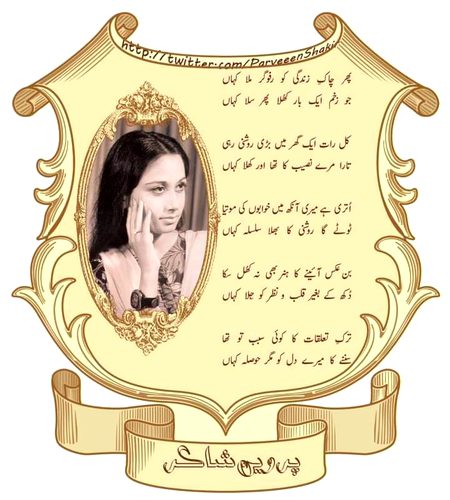 http://twitter.com/ParveeenShakir
پھر چاکِ زندگی کو رفوگر ملا کہاں
جو زخم ایک بار کھلا پھر سلا کہاں
کل رات ایک گھر میں بڑی روشنی رہی
تارا مرے نصیب کا تھا اور کھلا کہاں
اُتری ہے میری آنکھ میں خوابوں کی موتیا
ٹوٹے گا روشنی کا بھلا سلسلہ کہاں
بن عکس آئینے کا ہنر بھی نہ کھل سکا
دُکھ کے بغیر قلب و نظر کو جِلا کہاں
ترکِ تعلقات کا کوئی سبب تو تھا
سننے کا میرے دل کو مگر حوصلہ کہاں
پروین شاکر